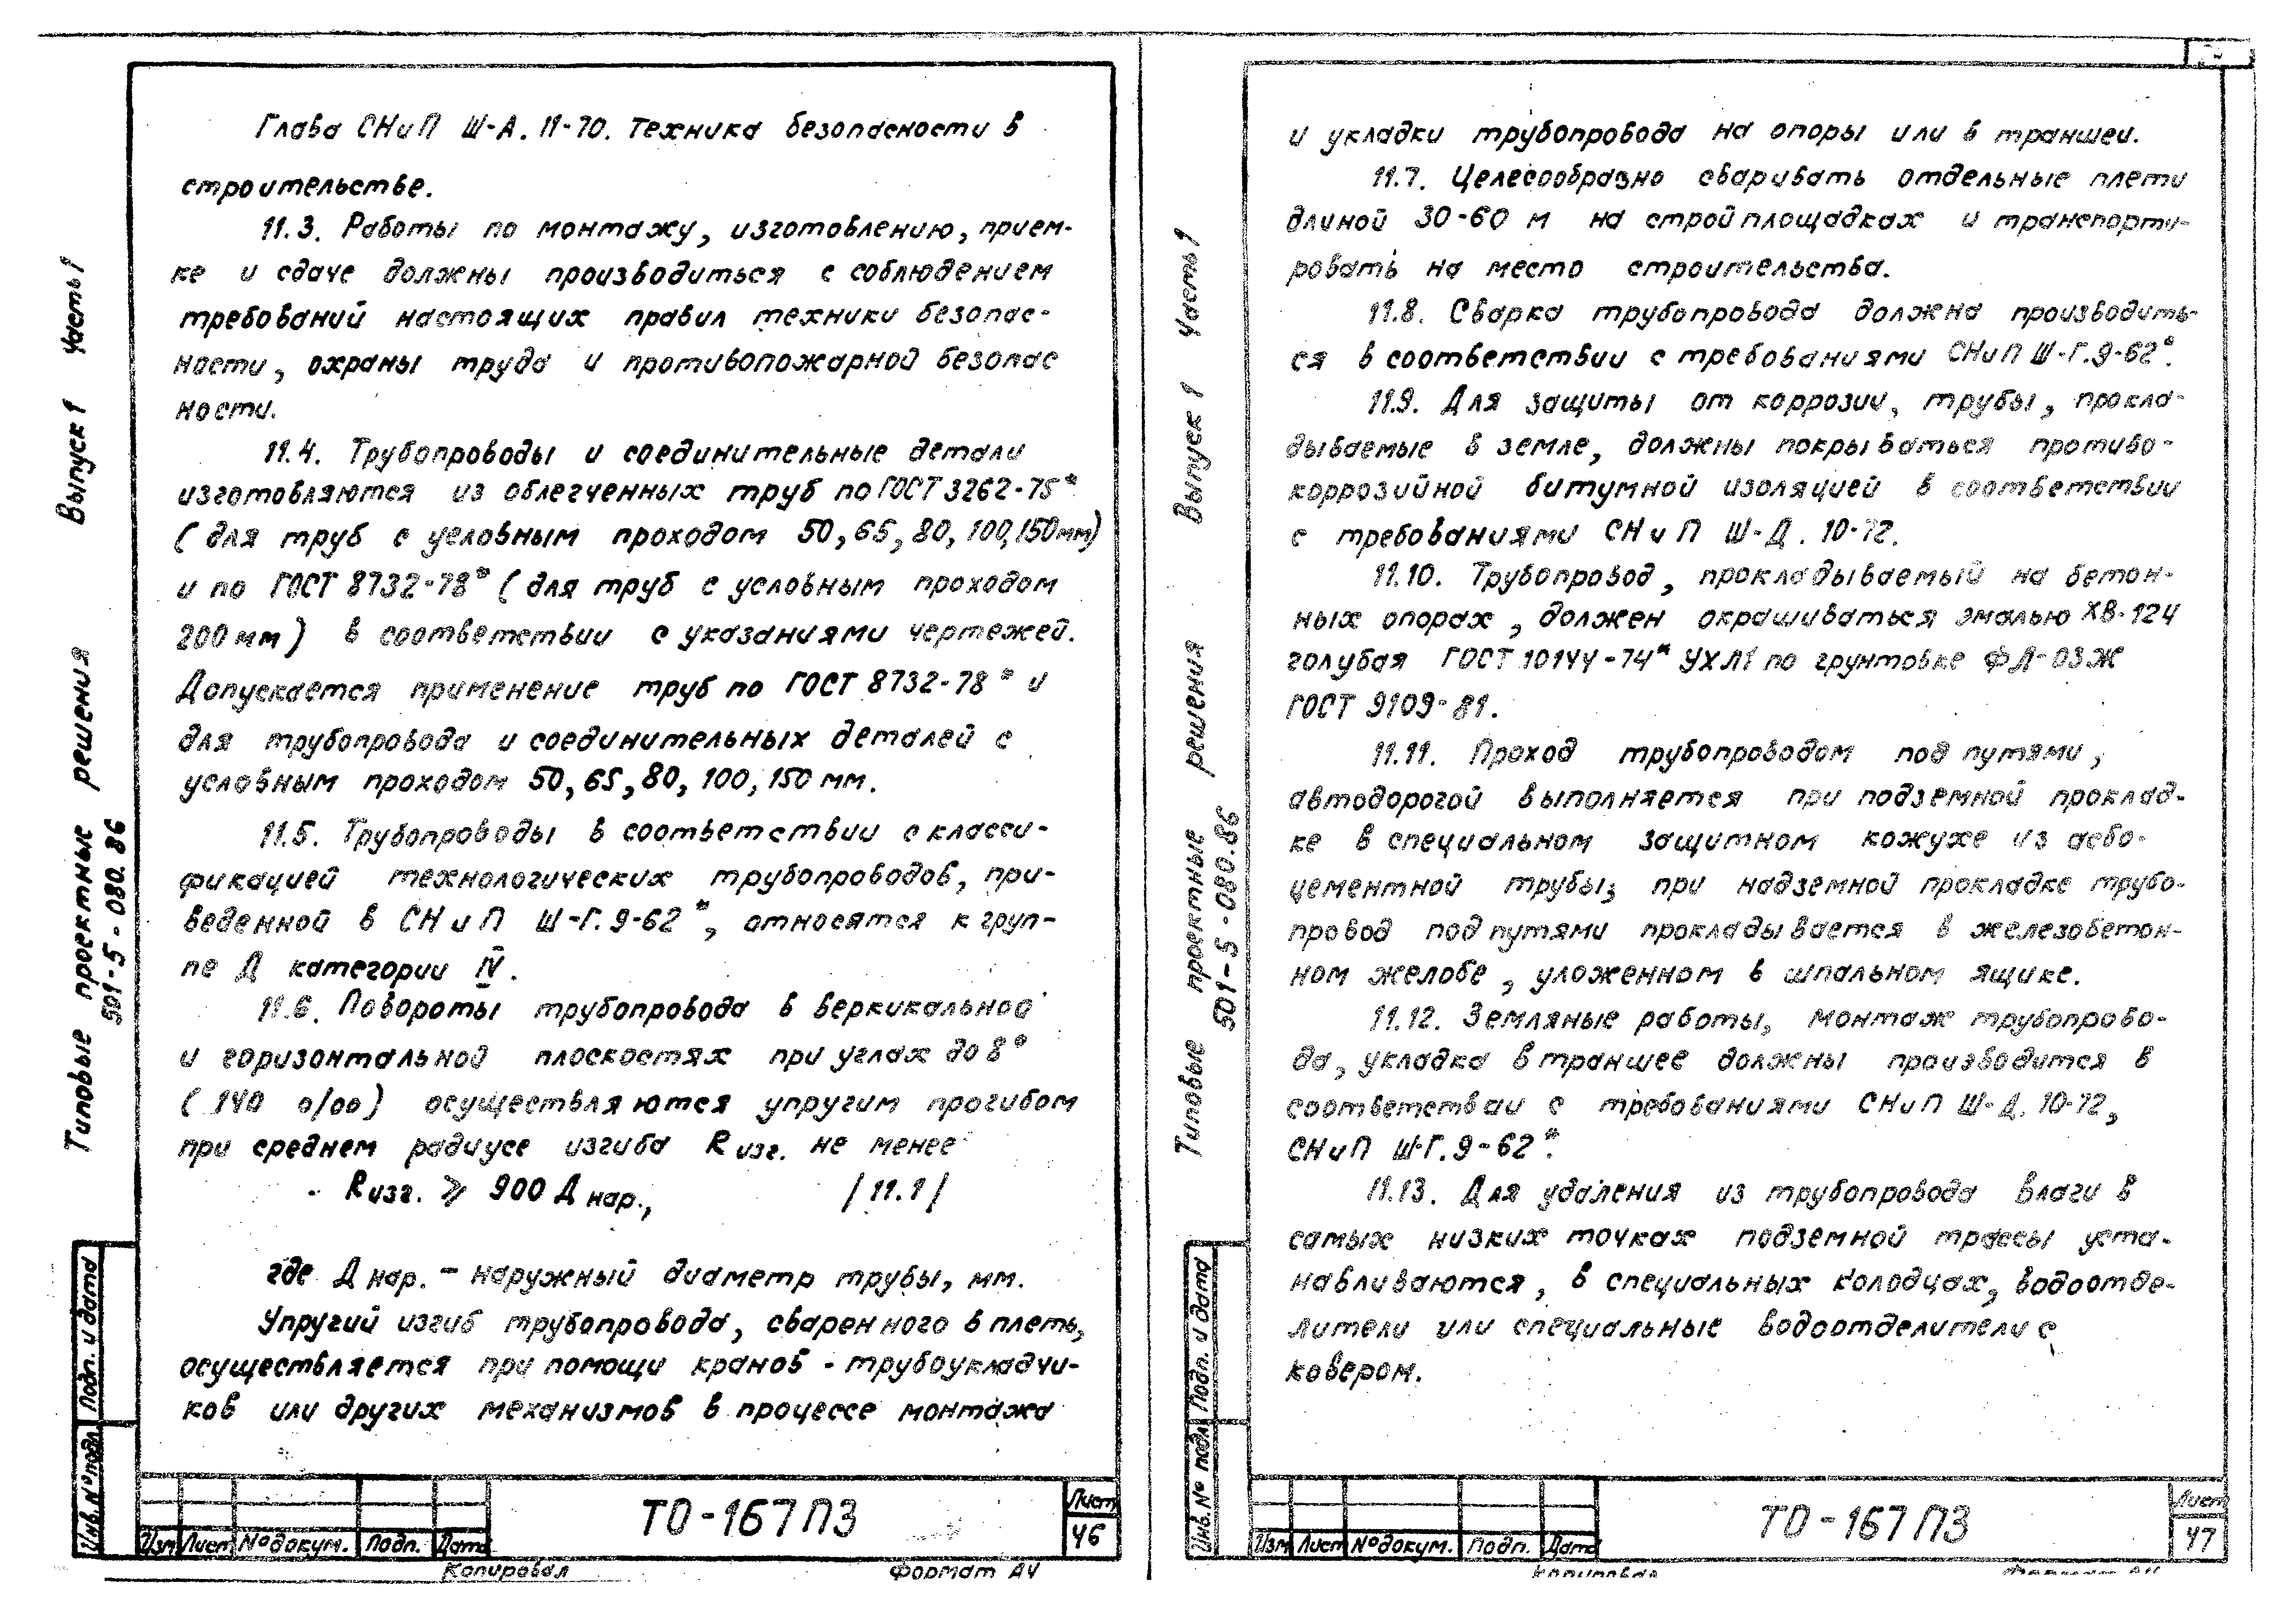 Глава СНиП Ш-А. 11-70. Техника безопасности в
строительстве.
11.3. Работы по монтажу, изготовлению, прием-
ке и сдаче должны производиться с соблюдением
требований настоящих правил техники безопас-
ности, охраны труда и противопожарной безопас
ности.
11.4. Трубопроводы и соединительные детали
изготовляются из облегченных труб по ГОСТ 3262-75*
(для труб с условным проходом 50, 65, 80, 100, 150мм)
и по ГОСТ 8732-78* (для труб с условным проходом
200мм) в соответствии с указаниями чертежей.
Допускается применение труб по ГОСТ 8732-78* и
для трубопровода и соединительных деталей с
условным проходом 50, 65, 80, 100, 150 мм.
11.5. Трубопроводы в соответствии с класси-
фикацией технологических трубопроводов, при-
веденной в СНиП Ш-Г.9-62*, относятся к груп-
пе Д категории IV.
11.6. Повороты трубопровода в веркикальной
и горизонтальной плоскостях при углах до 8°
(140 о/оо) осуществляются упругим прогибом
при среднем радиусе изгиба R изг. не менее
R изг. ⩾ 900 Д нар., /11.1/
где Д нар. – наружный диаметр трубы, мм.
Упругий изгиб трубопровода, сваренного в плеть,
осуществляется при помощи кранов - трубоукладчи-
ков или других механизмов в процессе монтажа
Типовые проектные решения Выпуск 1 Часть 1
501-5-080.86
Подп. и дата
Инв. № подл.
Изм Лист № докум. Подп. Дата
ТО-167 ПЗ
Лист
46
Копировал Формат А4
и укладки трубопровода на опоры или в траншеи.
11.7. Целесообразно сваривать отдельные плети
длиной 30-60 м на стройплощадках и транспорти-
ровать на место строительства.
11.8. Сварка трубопровода должна производить-
ся в соответствии с требованиями СНиП Ш-Г.9-62*.
11.9. Для защиты от коррозии, трубы, прокла-
дываемые в земле, должны покрываться противо-
коррозийной битумной изоляцией в соответствии
с требованиями СНиП Ш-Д. 10-72.
11.10. Трубопровод, прокладываемый на бетон-
ных опорах, должен окрашиваться эмалью ХВ-124
голубая ГОСТ 10144-74* УХЛ1 по грунтовке ФЛ-03Ж
ГОСТ 9109-81.
11.11. Проход трубопроводом под путями,
автодорогой выполняется при подземной проклад-
ке в специальном защитном кожухе из асбо-
цементной трубы; при надземной прокладке трубо-
провод под путями прокладывается в железобетон-
ном желобе, уложенном в шпальном ящике.
11.12. Земляные работы, монтаж трубопрово-
да, укладка в траншее должны производится в
соответствии с требованиями СНиП Ш-Д. 10-72,
СНиП Ш-Г.9-62*.
11.13. Для удаления из трубопровода влаги в
самых низких точках подземной трассы уста-
навливаются, в специальных колодцах, водоотде-
лители или специальные водоотделители с
ковером.
Типовые проектные решения Выпуск 1 Часть 1
501-5-080.86
Подп. и дата
Инв. № подл
Изм Лист № докум. Подп. Дата
ТО-167 ПЗ
Лист
47
Копировал Формат А4